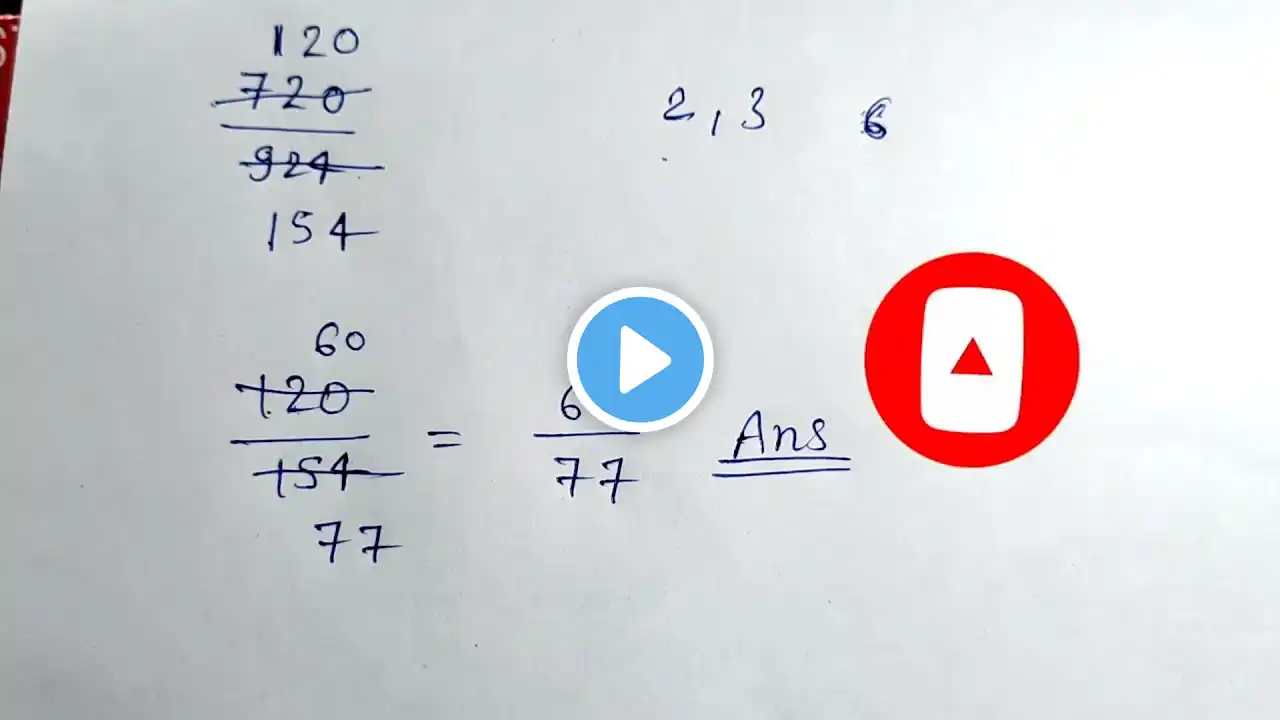 120
720
924
154
2, 3 6
60
120
154
77
=
6
77
Ans